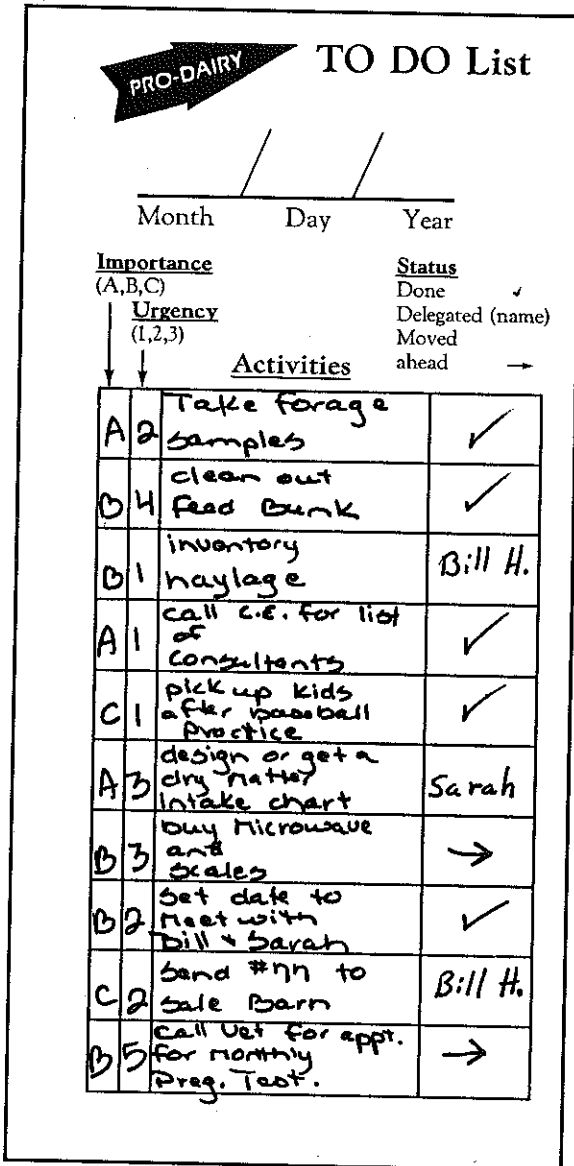 PRO-DAIRY
TO DO List
Month Day Year
Importance
(A,B,C)
Urgency
(1,2,3)
Status
Done ✓
Delegated (name)
Moved
ahead →
Activities
A 2 Take forage
samples ✓
B 4 clean out
Feed Bunk ✓
B 1 inventory
haylage Bill H.
A 1 call C.E. for list
of
consultants ✓
C 1 pick up kids
after baseball
Practice ✓
A 3 design or get a
dry matter
intake chart Sarah
B 3 buy Microwave
and
scales →
B 2 set date to
Meet with
Bill & Sarah ✓
C 2 send #77 to
Sale Barn Bill H.
B 5 call Vet for appt.
for monthly
Preg. Test. →